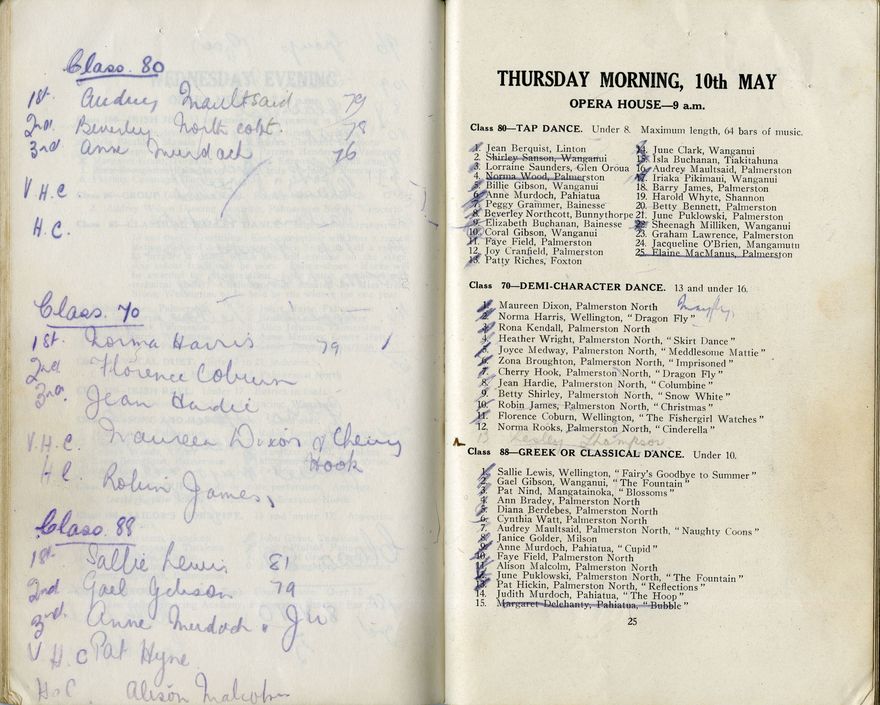 Class. 80
1st. Audrey Maultsaid 79
2nd Beverley Northcott. 78
3rd Anne Murdoch 76
V.H.C.
H.C.
Class. 70
1st. Norma Harris 79
2nd Florence Coburn
3rd. Jean Hardie
V.H.C. Maureen Dixon & Cherry
Hook
H.C. Robin James,
Class. 88
1st. Sallie Lewis 81
2nd Gael Gibson 79
3rd. Anne Murdoch
V.H.C Pat Hyne
H.C. Alison Malcolm
THURSDAY MORNING, 10th MAY
OPERA HOUSE—9 a.m.
Class 80—TAP DANCE. Under 8. Maximum length, 64 bars of music.
1. Jean Berquist, Linton
2. Shirley Sanson, Wanganui
3. Lorraine Saunders, Glen Oroua
4. Norma Wood, Palmerston
5. Billie Gibson, Wanganui
6. Anne Murdoch, Pahiatua
7. Peggy Grammer, Bainesse
8. Beverley Northcott, Bunnythorpe
9. Elizabeth Buchanan, Bainesse
10. Coral Gibson, Wanganui
11. Faye Field, Palmerston
12. Joy Cranfield, Palmerston
13. Patty Riches, Foxton
14. June Clark, Wanganui
15. Isla Buchanan, Tiakitahuna
16. Audrey Maultsaid, Palmerston
17. Iriaka Pikimaui, Wanganui
18. Barry James, Palmerston
19. Harold Whyte, Shannon
20. Betty Bennett, Palmerston
21. June Puklowski, Palmerston
22. Sheenagh Milliken, Wanganui
23. Graham Lawrence, Palmerston
24. Jacqueline O'Brien, Mangamutu
25. Elaine MacManus, Palmerston
Class 70—DEMI-CHARACTER DANCE. 13 and under 16.
1. Maureen Dixon, Palmerston North
2. Norma Harris, Wellington, "Dragon Fly"
3. Rona Kendall, Palmerston North
4. Heather Wright, Palmerston North, "Skirt Dance"
5. Joyce Medway, Palmerston North, "Meddlesome Mattie"
6. Zona Broughton, Palmerston North, "Imprisoned"
7. Cherry Hook, Palmerston North, "Dragon Fly"
8. Jean Hardie, Palmerston North, "Columbine"
9. Betty Shirley, Palmerston North, "Snow White"
10. Robin James, Palmerston North, "Christmas"
11. Florence Coburn, Wellington, "The Fishergirl Watches"
12. Norma Rooks, Palmerston North, "Cinderella"
13 Lesley Thompson
Class 88—GREEK OR CLASSICAL DANCE. Under 10.
1. Sallie Lewis, Wellington, "Fairy's Goodbye to Summer"
2. Gael Gibson, Wanganui, "The Fountain"
3. Pat Nind, Mangatainoka, "Blossoms"
4. Ann Bradey, Palmerston North
5. Diana Berdebes, Palmerston North
6. Cynthia Watt, Palmerston North
7. Audrey Maultsaid, Palmerston North, "Naughty Coons"
8. Janice Golder, Milson
9. Anne Murdoch, Pahiatua, "Cupid"
10. Faye Field, Palmerston North
11. Alison Malcolm, Palmerston North
12. June Puklowski, Palmerston North, "The Fountain"
13. Pat Hickin, Palmerston North, "Reflections"
14. Judith Murdoch, Pahiatua, "The Hoop"
15. Margaret Delehanty, Pahiatua, "Bubble"
25